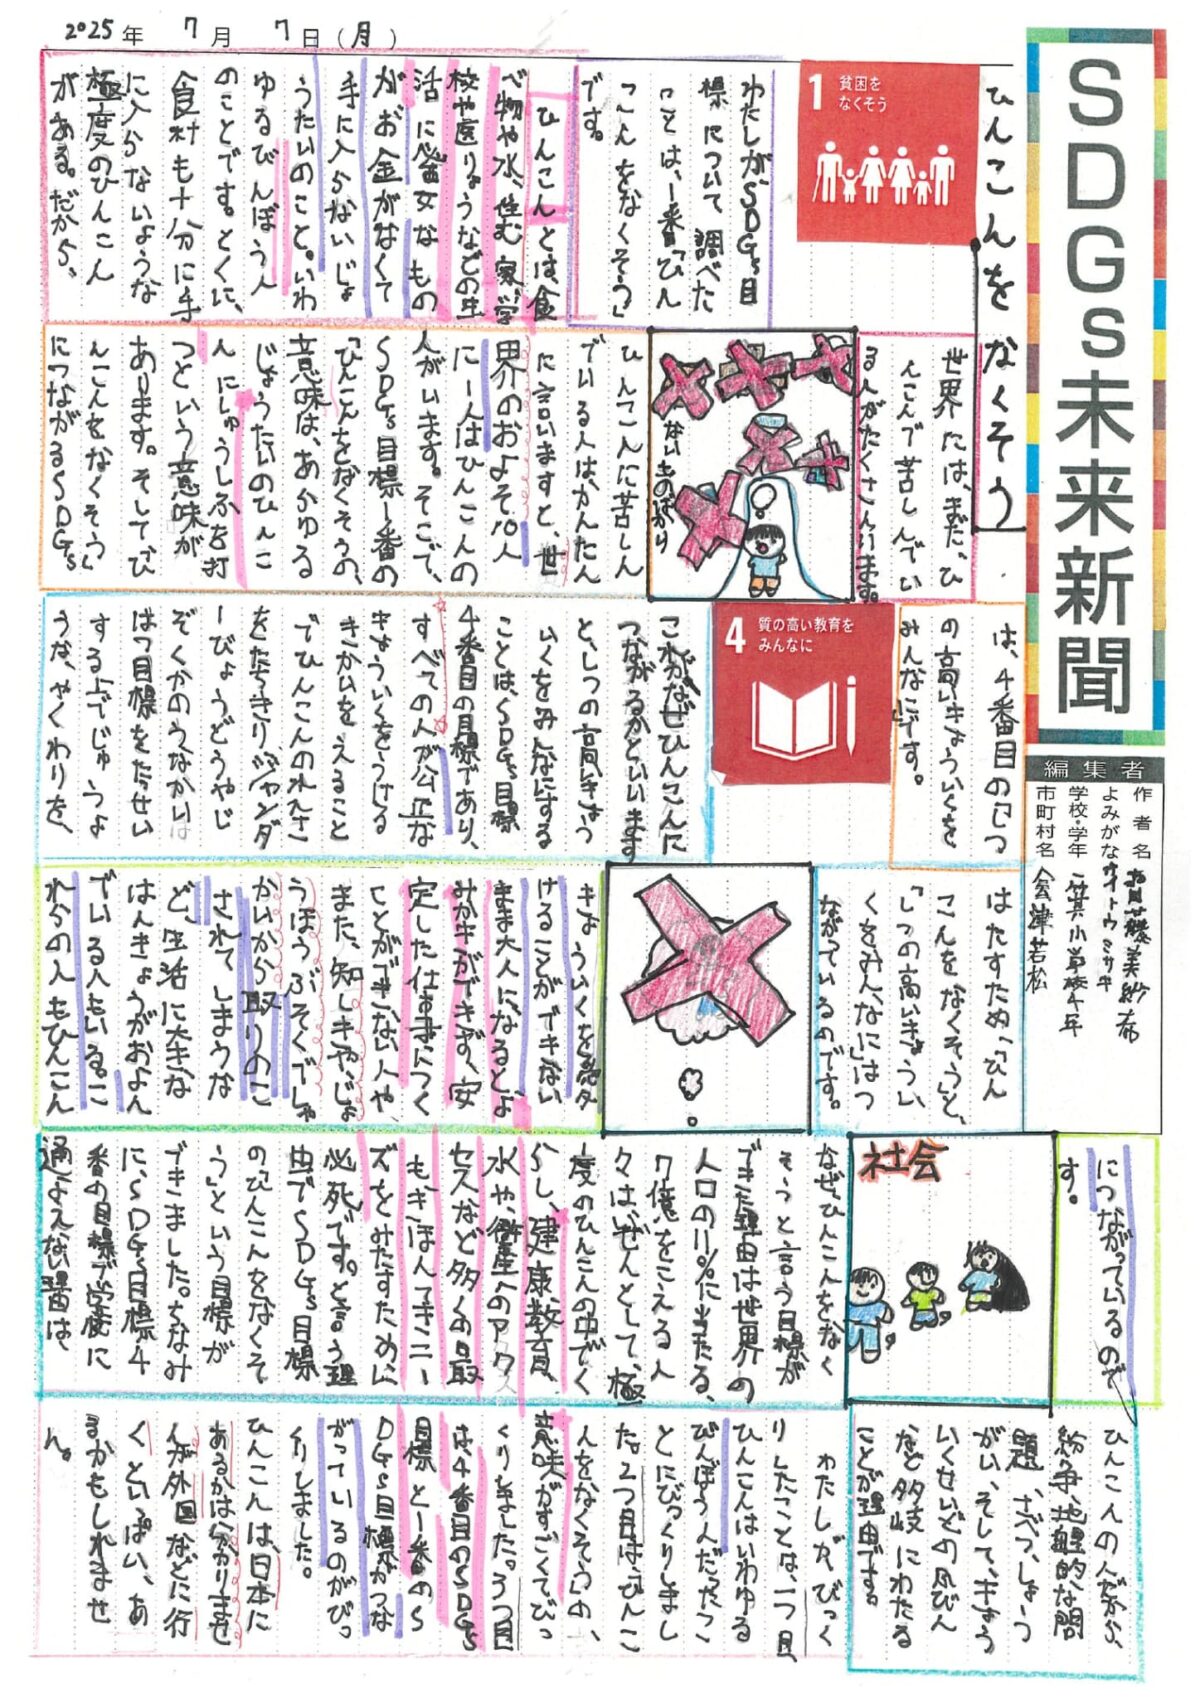 2025年 7月 7日(月)
SDGs未来新聞
編集者
作者名 齋藤美紗希
よみがな サイトウミサキ
学校・学年 一箕小学校4年
市町村名 会津若松
ひんこんをなくそう
1 貧困を
なくそう
わたしが、SDGs目
標について調べた
ことは、1番「ひん
こんをなくそう」
です。
ひんこんとは、食
べ物や水、住む家、学
校や医りょうなどの生
活に必要なもの
がお金がなくて
手に入らないじょ
うたいのこと。いわ
ゆるびんぼうん
のことです。とくに、
食材も十分に手
に入らないような
極度のひんこん
がある。だから、
世界には、まだ、ひ
んこんで苦しんでい
る人がたくさんいます。
ないものばかり
ひんこんに苦しん
でいる人は、かんたん
に言いますと、世
界のおよそ10人
に一人はひんこんの
人がいます。そこで、
SDGs目標1番の
「ひんこんをなくそう」の、
意味は、あらゆる
じょうたいのひんこ
んにしゅうしふを打
つという意味が
あります。そして、「ひ
んこんをなくそう」
につながるSDGs
は、4番目の「しつ
の高いきょういくを
みんなに」です。
4 質の高い教育を
みんなに
これがなぜひんこんに
つながるかといいます
と、しつの高いきょう
いくをみんなにする
ことは、SDGs目標
4番目の目標であり、
すべての人が公正な
きょういくをうける
きかいをえること
でひんこんのれんさ
をたちきりジェンダ
ーびょうどうやじ
ぞくかのうなかいは
はつ目標をたっせい
する上でじゅうよ
うな、やくわりを、
はたすため、「ひん
こんをなくそう」と、
「しつの高いきょうい
くをみんなに」はつ
ながっているのです。
きょういくを受け
けることができない
まま大人になると、よ
みかきができず、安
定した仕事につく
ことができない人や、
また、知しきやじょ
うほうぶそくでしゃ
かいから取りのこ
されてしまうな
ど、生活に大きな
はんきょうがおよん
でいる人もいる。こ
れらの人もひんこん
につながっているので
す。
社会
なぜ、ひんこんをなく
そうと言う目標が
できた理由は世界の
人口の11%に当たる、
7億をこえる人
々は、ぜんとして、極
度のひんこんの中でく
らし、建康、教育、
水や、衛生へのアク
セスなど多くの最
も、きほんてきニー
ズをみたすために
必死です。と言う理
由でSDGs目標
の「ひんこんをなくそ
う」という目標が
できました。ちなみ
に、SDGs目標4
番の目標で学校に
通よえない理由は、
ひんこんの人だから、
紛争、地理的な問
題、さべつ、しょう
がい、そして、きょう
いくせいどの風びん
など多岐にわたる
ことが理由です。
わたしがびっく
りしたことは、一つ目
ひんこんはいわゆる
びんぼう人だったこ
とにびっくりしまし
た。2つ目は、ひんこ
んをなくそう」の、
意味がすごくてびっ
くりしました。3つ目
は、4番目のSDGs
目標と1番のS
DGs目標がつな
がっているのがびっ
くりしました。
ひんこんは、日本に
あるかは、分かりませ
んが外国などに行
くといっぱい、あ
るかもしれませ
ん。